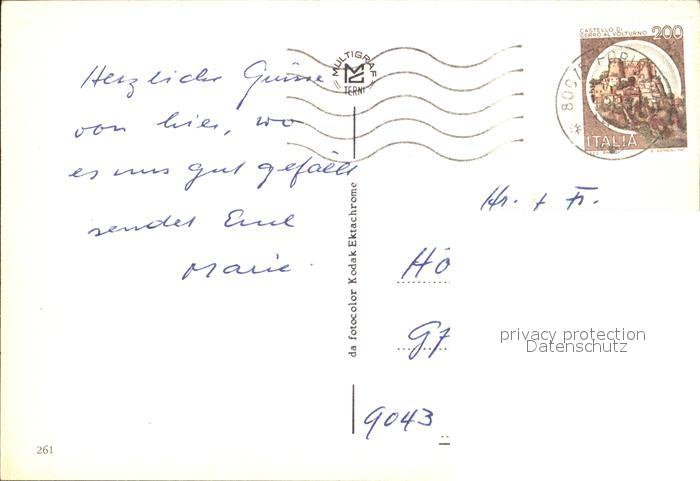 Herzliche Grüsse
von hier, wo
es uns gut gefällt
sendet Euch
Marie.
MULTIGRAF
TERNI
CASTELLO DI
CERRO AL VOLTURNO 200
ITALIA
Hr. + Fr.
Hö
privacy protection
Datenschutz
9043
da fotocolor Kodak Ektachrome
261